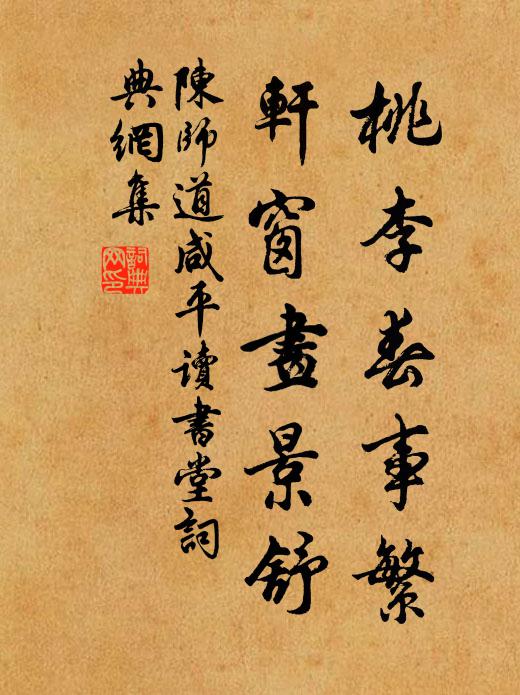 桃李春事繁
軒窗晝景舒
陳師道咸平讀書堂詞
典網集
詞典網印